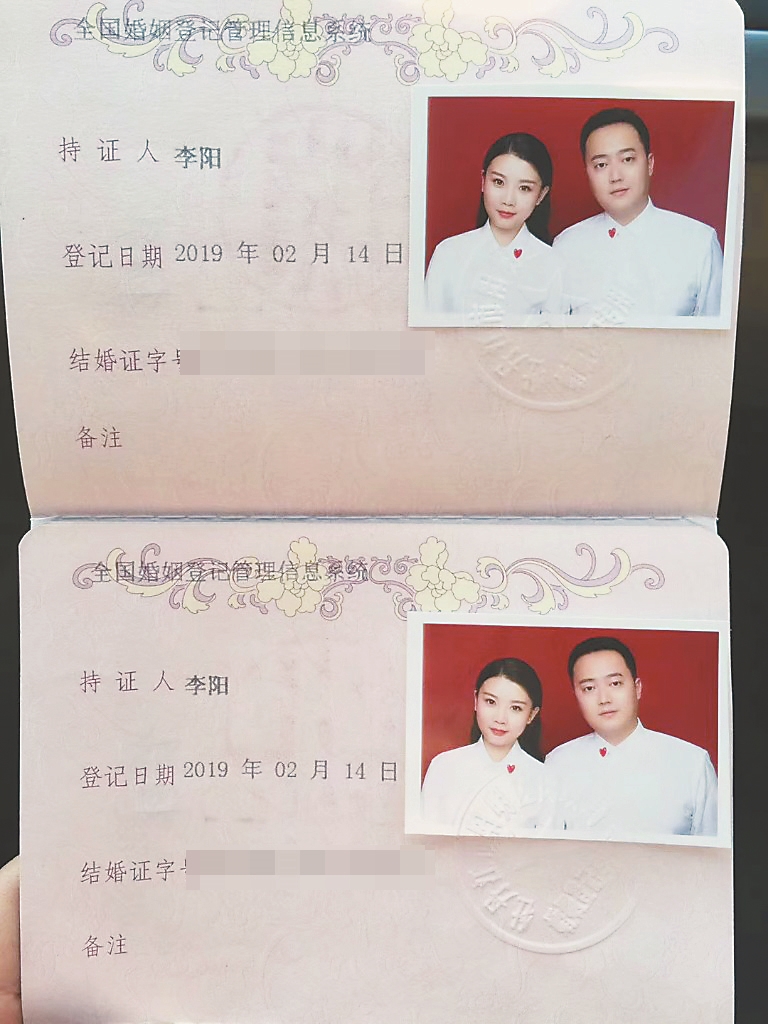 全国婚姻登记管理信息系统
持证人 李阳
登记日期 2019 年 02 月 14 日
结婚证字号
备注
全国婚姻登记管理信息系统
持证人 李阳
登记日期 2019 年 02 月 14 日
结婚证字号
备注